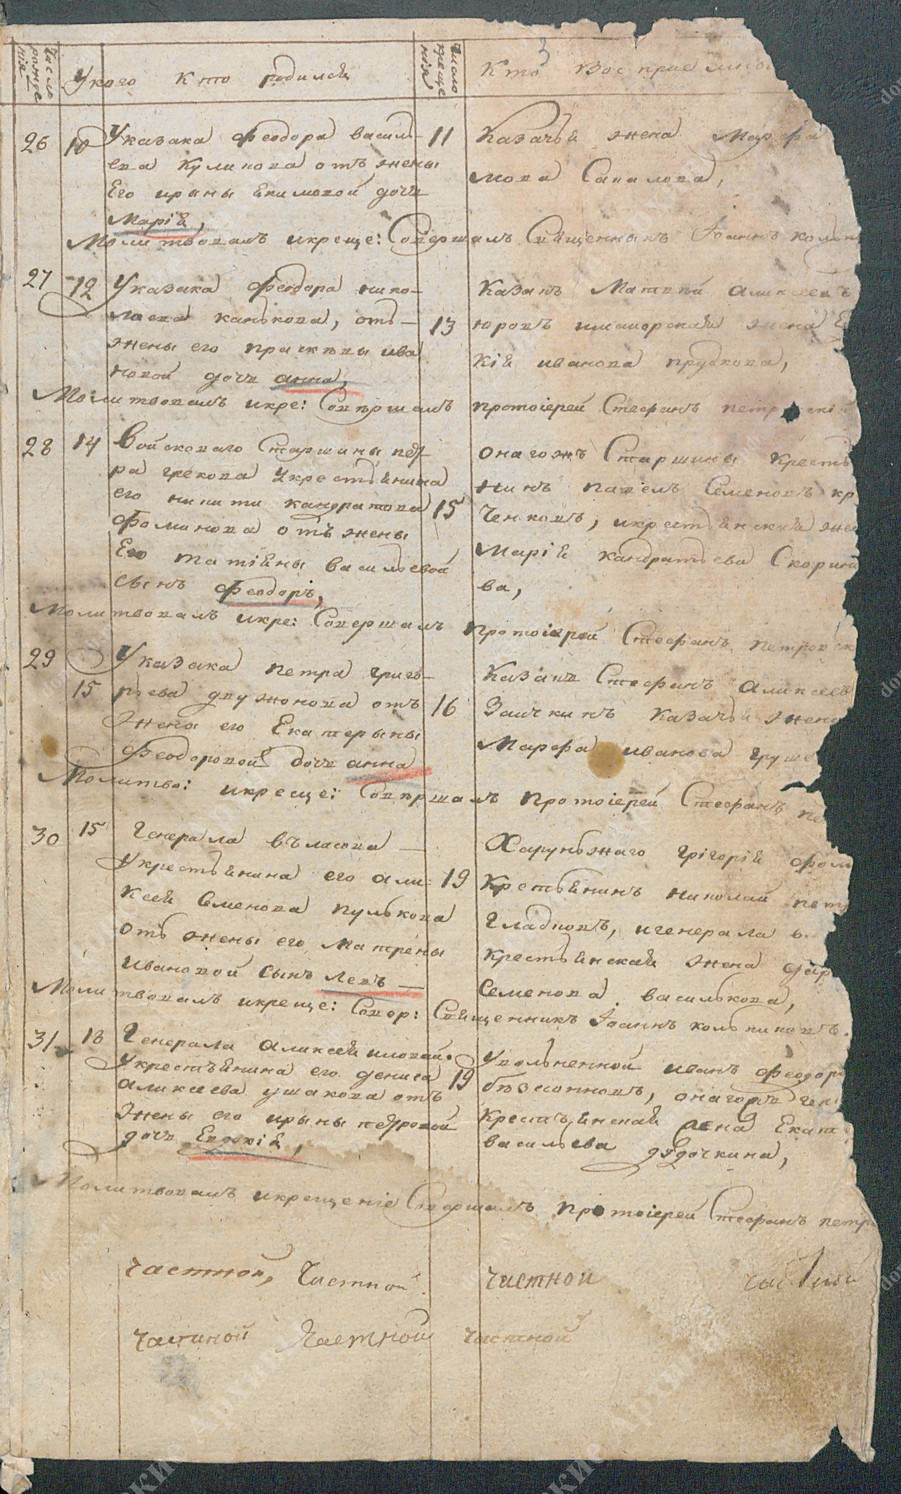 Число рожде нія
У кого кто родился
Число креще нія
Кто воспріем
26 10 У казака Феодора василь–
ева Куликова отъ жены
Его ирины Екимовой дочь
Марія,
11 Казачья жена Марфа
мова Сапалова,
Молитвовалъ икреще: Совершалъ Священникъ Іоаннъ
27 12 У казака Феодора нико–
лаева канькова, отъ–
жены его праскевы ива
новой дочь анна,
13 Казакъ Матвей аликсеевъ
юровъ имаиорская жена
кія иванова прудкова,
Молитвовалъ икре: Совершалъ протоіерей Стефанъ петр
28 14 Войсковаго Старшины пет
ра грекова Укрестьянина
его никити кандратова
Фоминова отъ жены
Его татіяны васильевой
сынъ Феодоръ,
15 онагожъ Старшины Кресть
нинъ павелъ Семеновъ кр
ченковъ, икрестьянская жен
Марія кандратьева Скори
ва,
Молитвовалъ икре: Совершалъ протоіерей Стефанъ петров
29 15 У казака петра григо–
рьева двужонова отъ
жены его Екатерыны
Феодоровой дочь анна
16 Казакъ Стефанъ аликсеев
Заичкинъ казачья жена
Марфа иванова груше
Молитво: икреще: Совершалъ протоіерей Стефанъ пе
30 15 Генерала власова –
Укрестьянина его али
ксея Семенова пулькова
отъ жены его Матрены
ивановой Сынъ левъ –
19 Харунжаго григорія фом
Крестьянинъ николай пет
гладковъ, игенерала в
крестьянская жена дар
Семенова василькова,
Молитвовалъ икреще: Совор: Священникъ Іоаннъ кольпиковъ.
31 18 Генерала аликсея иловай:
Укрестьянина его дениса
аликсеева ушакова отъ
жены его ирыны петровой
дочь Евдокія,
19 Увольненной иванъ феодор
безсонновъ, онагожъ ген
крестьянская жена Екат
васильева дядочкина,
Молитвовалъ икрещеніе Совершалъ протоіерей Стефанъ петр
частной, частной частной частной
частной частной частной